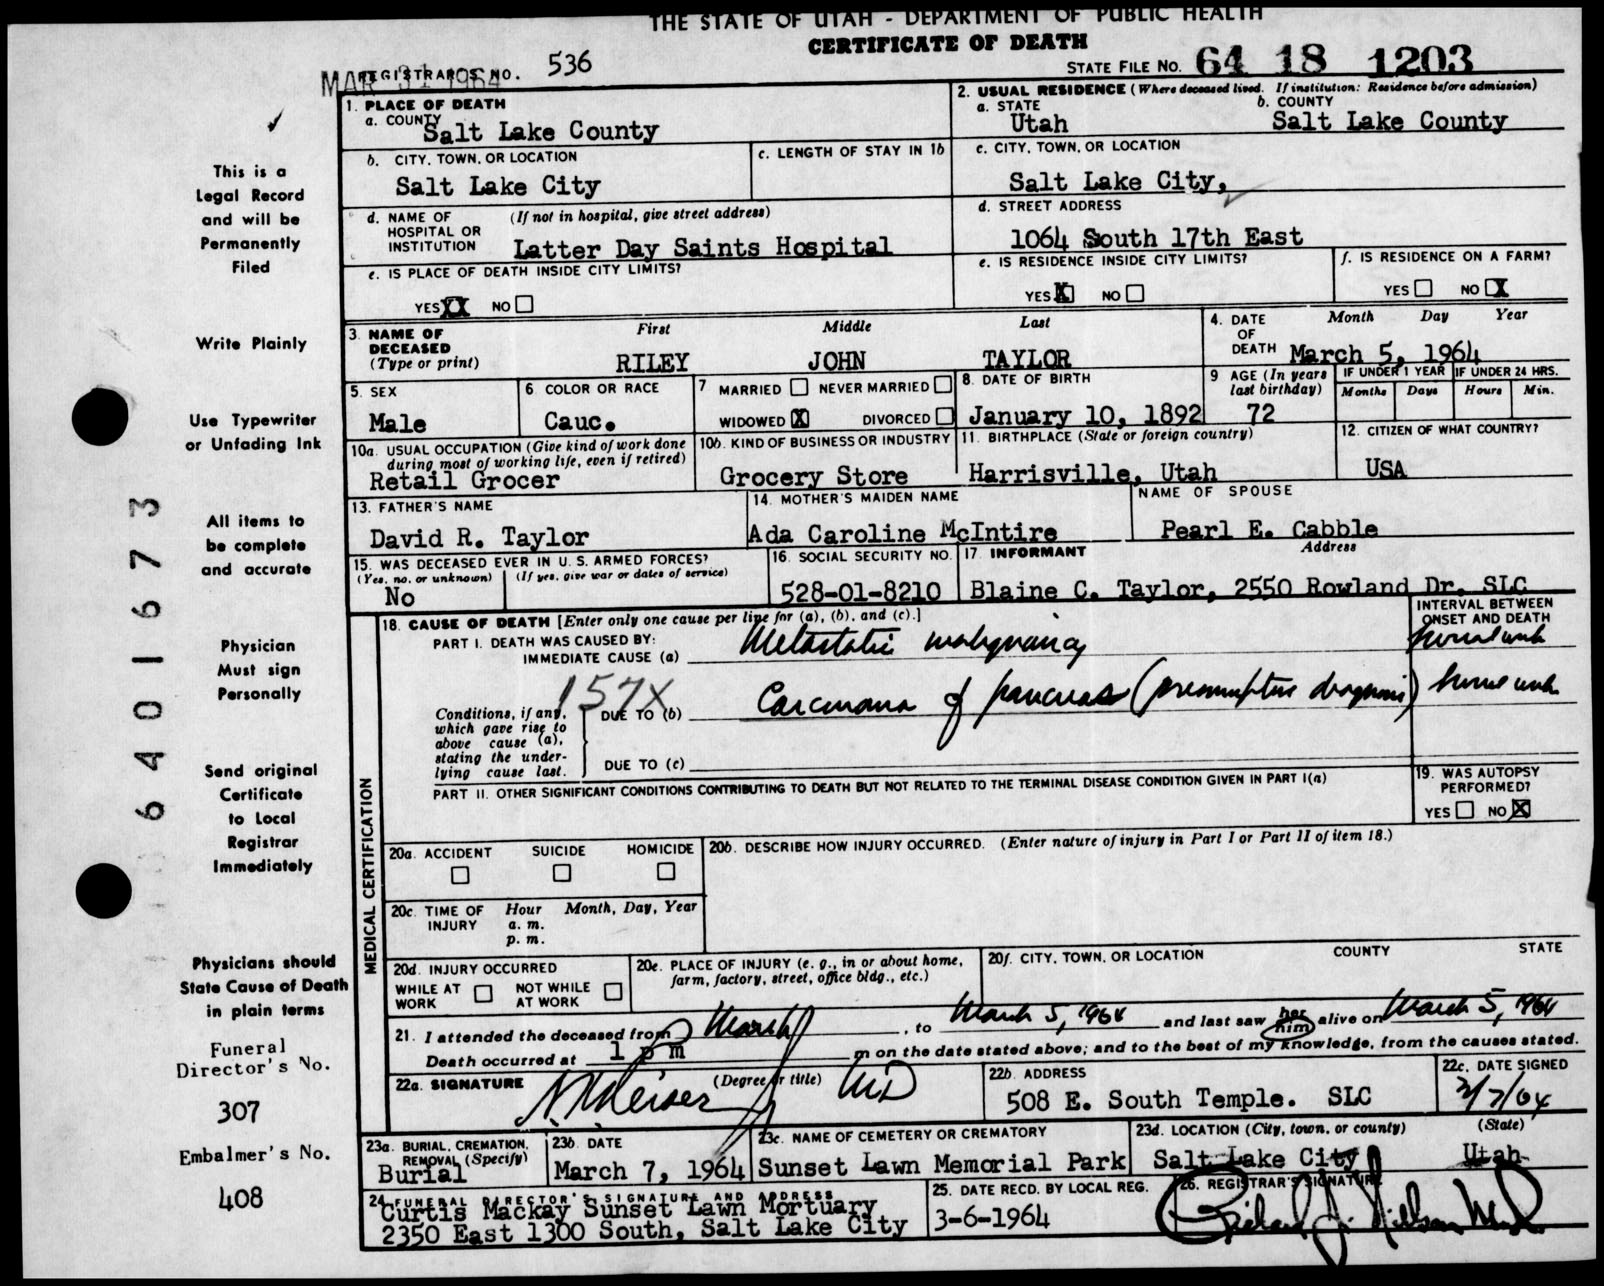 THE STATE OF UTAH - DEPARTMENT OF PUBLIC HEALTH
CERTIFICATE OF DEATH
REGISTRAR'S NO. 536
MAR 31 1964
STATE FILE NO. 64 18 1203
1. PLACE OF DEATH
a. COUNTY
Salt Lake County
2. USUAL RESIDENCE (Where deceased lived. If institution: Residence before admission)
a. STATE
Utah
b. COUNTY
Salt Lake County
b. CITY, TOWN, OR LOCATION
Salt Lake City
c. LENGTH OF STAY IN 1b
c. CITY, TOWN, OR LOCATION
Salt Lake City,
d. NAME OF HOSPITAL OR INSTITUTION
(If not in hospital, give street address)
Latter Day Saints Hospital
d. STREET ADDRESS
1064 South 17th East
e. IS PLACE OF DEATH INSIDE CITY LIMITS?
YES XX NO
e. IS RESIDENCE INSIDE CITY LIMITS?
YES X NO
f. IS RESIDENCE ON A FARM?
YES NO X
3. NAME OF DECEASED
(Type or print)
First Middle Last
RILEY JOHN TAYLOR
4. DATE OF DEATH
Month Day Year
March 5, 1964
5. SEX
Male
6 COLOR OR RACE
Cauc.
7 MARRIED NEVER MARRIED
WIDOWED X DIVORCED
8. DATE OF BIRTH
January 10, 1892
9 AGE (In years last birthday)
72
IF UNDER 1 YEAR
Months Days
IF UNDER 24 HRS.
Hours Min.
10a. USUAL OCCUPATION (Give kind of work done during most of working life, even if retired)
Retail Grocer
10b. KIND OF BUSINESS OR INDUSTRY
Grocery Store
11. BIRTHPLACE (State or foreign country)
Harrisville, Utah
12. CITIZEN OF WHAT COUNTRY?
USA
13. FATHER'S NAME
David R. Taylor
14. MOTHER'S MAIDEN NAME
Ada Caroline McIntire
NAME OF SPOUSE
Pearl E. Cabble
15. WAS DECEASED EVER IN U. S. ARMED FORCES?
(Yes, no, or unknown) (If yes, give war or dates of service)
No
16. SOCIAL SECURITY NO.
528-01-8210
17. INFORMANT Address
Blaine C. Taylor, 2550 Rowland Dr. SLC
MEDICAL CERTIFICATION
18. CAUSE OF DEATH [Enter only one cause per line for (a), (b), and (c).]
INTERVAL BETWEEN ONSET AND DEATH
PART I. DEATH WAS CAUSED BY:
IMMEDIATE CAUSE (a) Metastatic malignancy
157X
Conditions, if any, which gave rise to above cause (a), stating the underlying cause last.
DUE TO (b) Carcinoma of pancreas (presumptive diagnosis)
DUE TO (c)
PART II. OTHER SIGNIFICANT CONDITIONS CONTRIBUTING TO DEATH BUT NOT RELATED TO THE TERMINAL DISEASE CONDITION GIVEN IN PART I(a)
19. WAS AUTOPSY PERFORMED?
YES NO X
20a. ACCIDENT SUICIDE HOMICIDE
20b. DESCRIBE HOW INJURY OCCURRED. (Enter nature of injury in Part I or Part II of item 18.)
20c. TIME OF INJURY
Hour Month, Day, Year
a. m.
p. m.
20d. INJURY OCCURRED
WHILE AT WORK NOT WHILE AT WORK
20e. PLACE OF INJURY (e. g., in or about home, farm, factory, street, office bldg., etc.)
20f. CITY, TOWN, OR LOCATION COUNTY STATE
21. I attended the deceased from March, to March 5, 1964 and last saw her him alive on March 5, 1964
Death occurred at 1 p m m on the date stated above; and to the best of my knowledge, from the causes stated.
22a. SIGNATURE (Degree or title) MD
22b. ADDRESS
508 E. South Temple. SLC
22c. DATE SIGNED
3/7/64
23a. BURIAL, CREMATION, REMOVAL (Specify)
Burial
23b. DATE
March 7, 1964
23c. NAME OF CEMETERY OR CREMATORY
Sunset Lawn Memorial Park
23d. LOCATION (City, town, or county) (State)
Salt Lake City Utah
24. FUNERAL DIRECTOR'S SIGNATURE AND ADDRESS
Curtis Mackay Sunset Lawn Mortuary
2350 East 1300 South, Salt Lake City
25. DATE RECD. BY LOCAL REG.
3-6-1964
26. REGISTRAR'S SIGNATURE
This is a
Legal Record
and will be
Permanently
Filed
Write Plainly
Use Typewriter
or Unfading Ink
All items to
be complete
and accurate
Physician
Must sign
Personally
Send original
Certificate
to Local
Registrar
Immediately
Physicians should
State Cause of Death
in plain terms
Funeral
Director's No.
307
Embalmer's No.
408
6401673